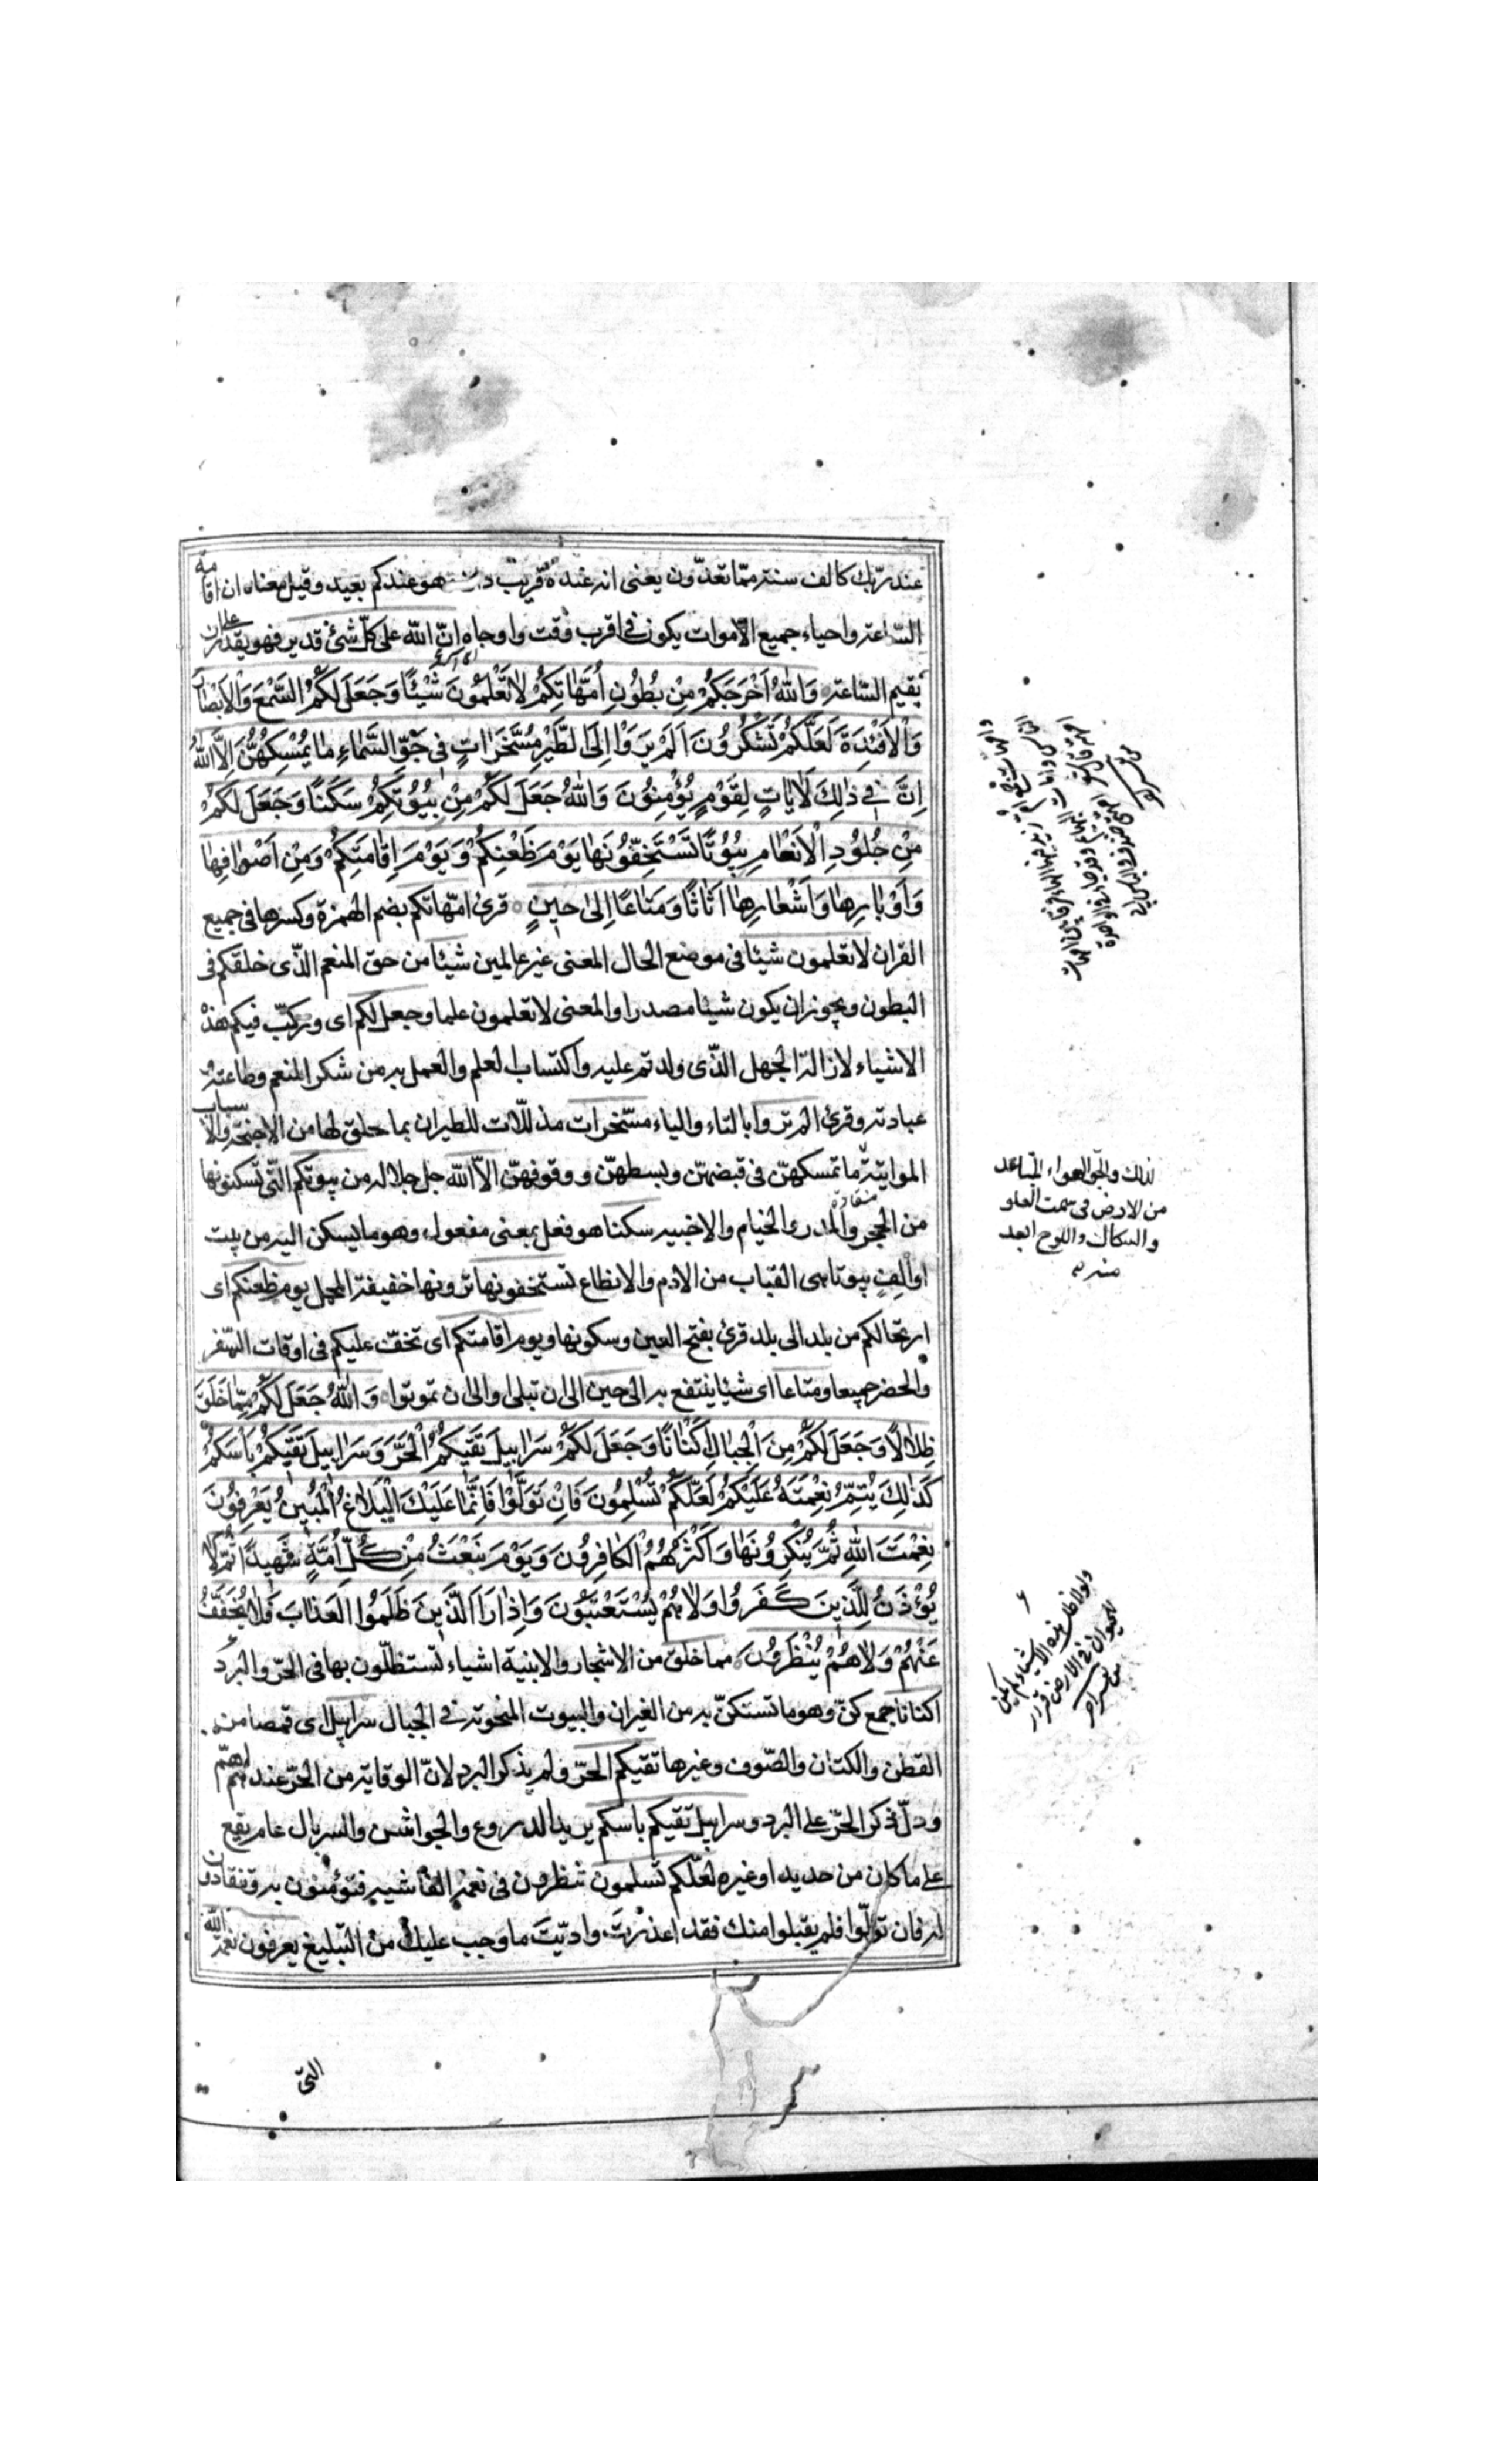 عند ربّك كالف سنة ممّا تعدّون يعنى انه عنده قريب وهو عندكم بعيد وقيل معناه ان اقامة
السّاعة واحياء جميع الاموات يكون فى اقرب وقت واوحاه انّ اللّه على كلّ شئ قدير فهو يقدر على ان
يقيم السّاعة وَاللّٰهُ اَخْرَجَكُمْ مِنْ بُطُونِ اُمَّهٰاتِكُمْ لاٰ تَعْلَمُونَ شَيْئًا وَجَعَلَ لَكُمُ السَّمْعَ وَالْاَبْصٰارَ
وَالْاَفْئِدَةَ لَعَلَّكُمْ تَشْكُرُونَ اَلَمْ يَرَوْا اِلَى الطَّيْرِ مُسَخَّرٰاتٍ فى جَوِّ السَّمٰاءِ مٰا يُمْسِكُهُنَّ اِلاَّ اللّٰهُ
اِنَّ فى ذٰلِكَ لَاٰيٰاتٍ لِقَوْمٍ يُؤْمِنُونَ وَاللّٰهُ جَعَلَ لَكُمْ مِنْ بُيُوتِكُمْ سَكَنًا وَجَعَلَ لَكُمْ
مِنْ جُلُودِ الْاَنْعٰامِ بُيُوتًا تَسْتَخِفُّونَهٰا يَوْمَ ظَعْنِكُمْ وَيَوْمَ اِقٰامَتِكُمْ وَمِنْ اَصْوٰافِهٰا
وَاَوْبٰارِهٰا وَاَشْعٰارِهٰا اَثٰاثًا وَمَتٰاعًا اِلىٰ حينٍ قرئ امّهاتكم بضم الهمزة وكسرها فى جميع
القران لا تعلمون شيئا فى موضع الحال المعنى غير عالمين شيئا من حق المنعم الّذى خلقكم فى
البطون ويجوز ان يكون شيئا مصدرا والمعنى لا تعلمون علما وجعل لكم اى وركّب فيكم هذه
الاشياء لازالة الجهل الّذى ولدتم عليه واكتساب العلم والعمل به من شكر المنعم وطاعته و
عبادته وقرئ الم تروا بالتاء والياء مسّخرات مذلّلات للطيران بما خلق لها من الاجنحة والاسباب
المواتية ما تمسكهنّ فى قبضهنّ وبسطهنّ ووقوفهنّ الاّ اللّه جل جلاله من بيوتكم الّتى تسكنونها
من الحجر والمدر والخيام والاخبيه سكنا هو فعل بمعنى مفعول وهو ما يسكن اليه من بيت
او الفٍ بيوتا هى القباب من الادم والانطاع تستخفونها ترونها خفيفة المحمل يوم ظعنكم اى
ارتحالكم من بلد الى بلد قرئ بفتح العين وسكونها ويوم اقامتكم اى تخفّ عليكم فى اوقات السّفر
والحضر جميعا ومتاعا اى شيئا ينتفع به الى حين الى ان تبلى او الى ان تموتوا وَاللّٰهُ جَعَلَ لَكُمْ مِمّٰا خَلَقَ
ظِلاٰلًا وَجَعَلَ لَكُمْ مِنَ الْجِبٰالِ اَكْنٰانًا وَجَعَلَ لَكُمْ سَرٰابيلَ تَقيكُمُ الْحَرَّ وَسَرٰابيلَ تَقيكُمْ بَاْسَكُمْ
كَذٰلِكَ يُتِمُّ نِعْمَتَهُ عَلَيْكُمْ لَعَلَّكُمْ تُسْلِمُونَ فَاِنْ تَوَلَّوْا فَاِنَّمٰا عَلَيْكَ الْبَلاٰغُ الْمُبينُ يَعْرِفُونَ
نِعْمَتَ اللّٰهِ ثُمَّ يُنْكِرُونَهٰا وَاَكْثَرُهُمُ الْكٰافِرُونَ وَيَوْمَ نَبْعَثُ مِنْ كُلِّ اُمَّةٍ شَهيدًا ثُمَّ لاٰ
يُؤْذَنُ لِلَّذينَ كَفَرُوا وَلاٰ هُمْ يُسْتَعْتَبُونَ وَاِذٰا رَاَ الَّذينَ ظَلَمُوا الْعَذٰابَ فَلاٰ يُخَفَّفُ
عَنْهُمْ وَلاٰ هُمْ يُنْظَرُونَ مما خلق من الاشجار والابنية اشياء تستظلّون بها فى الحرّ والبرد
اكنانا جمع كنّ وهو ما تستكنّ به من الغيران والبيوت المنحوتة فى الجبال سرابيل اى قمصا من
القطن والكتان والصّوف وغيرها تقيكم الحرّ ولم يذكر البرد لانّ الوقاية من الحرّ عندهم اهمّ
ودلّ ذكر الحرّ على البرد وسرابيل تقيكم باسكم يريد الدروع والجواشن والسربال عام يقع
على ما كان من حديد او غيره لعلّكم تسلمون تنظرون فى نعمه الفاشية فتؤمنون به وتنقادون
له فان تولّوا فلم يقبلوا منك فقد اعذرتَ وادّيتَ ما وجب عليك من التبليغ يعرفون نعمة اللّه
الّتى
لذلك والجوّ الهواء المتباعد
من الارض فى سمت العلو
والسكاك واللوح ابعد
منه
ولولا ظل هذه الاشياء لم يكن
للحيوان فى الارض قرار